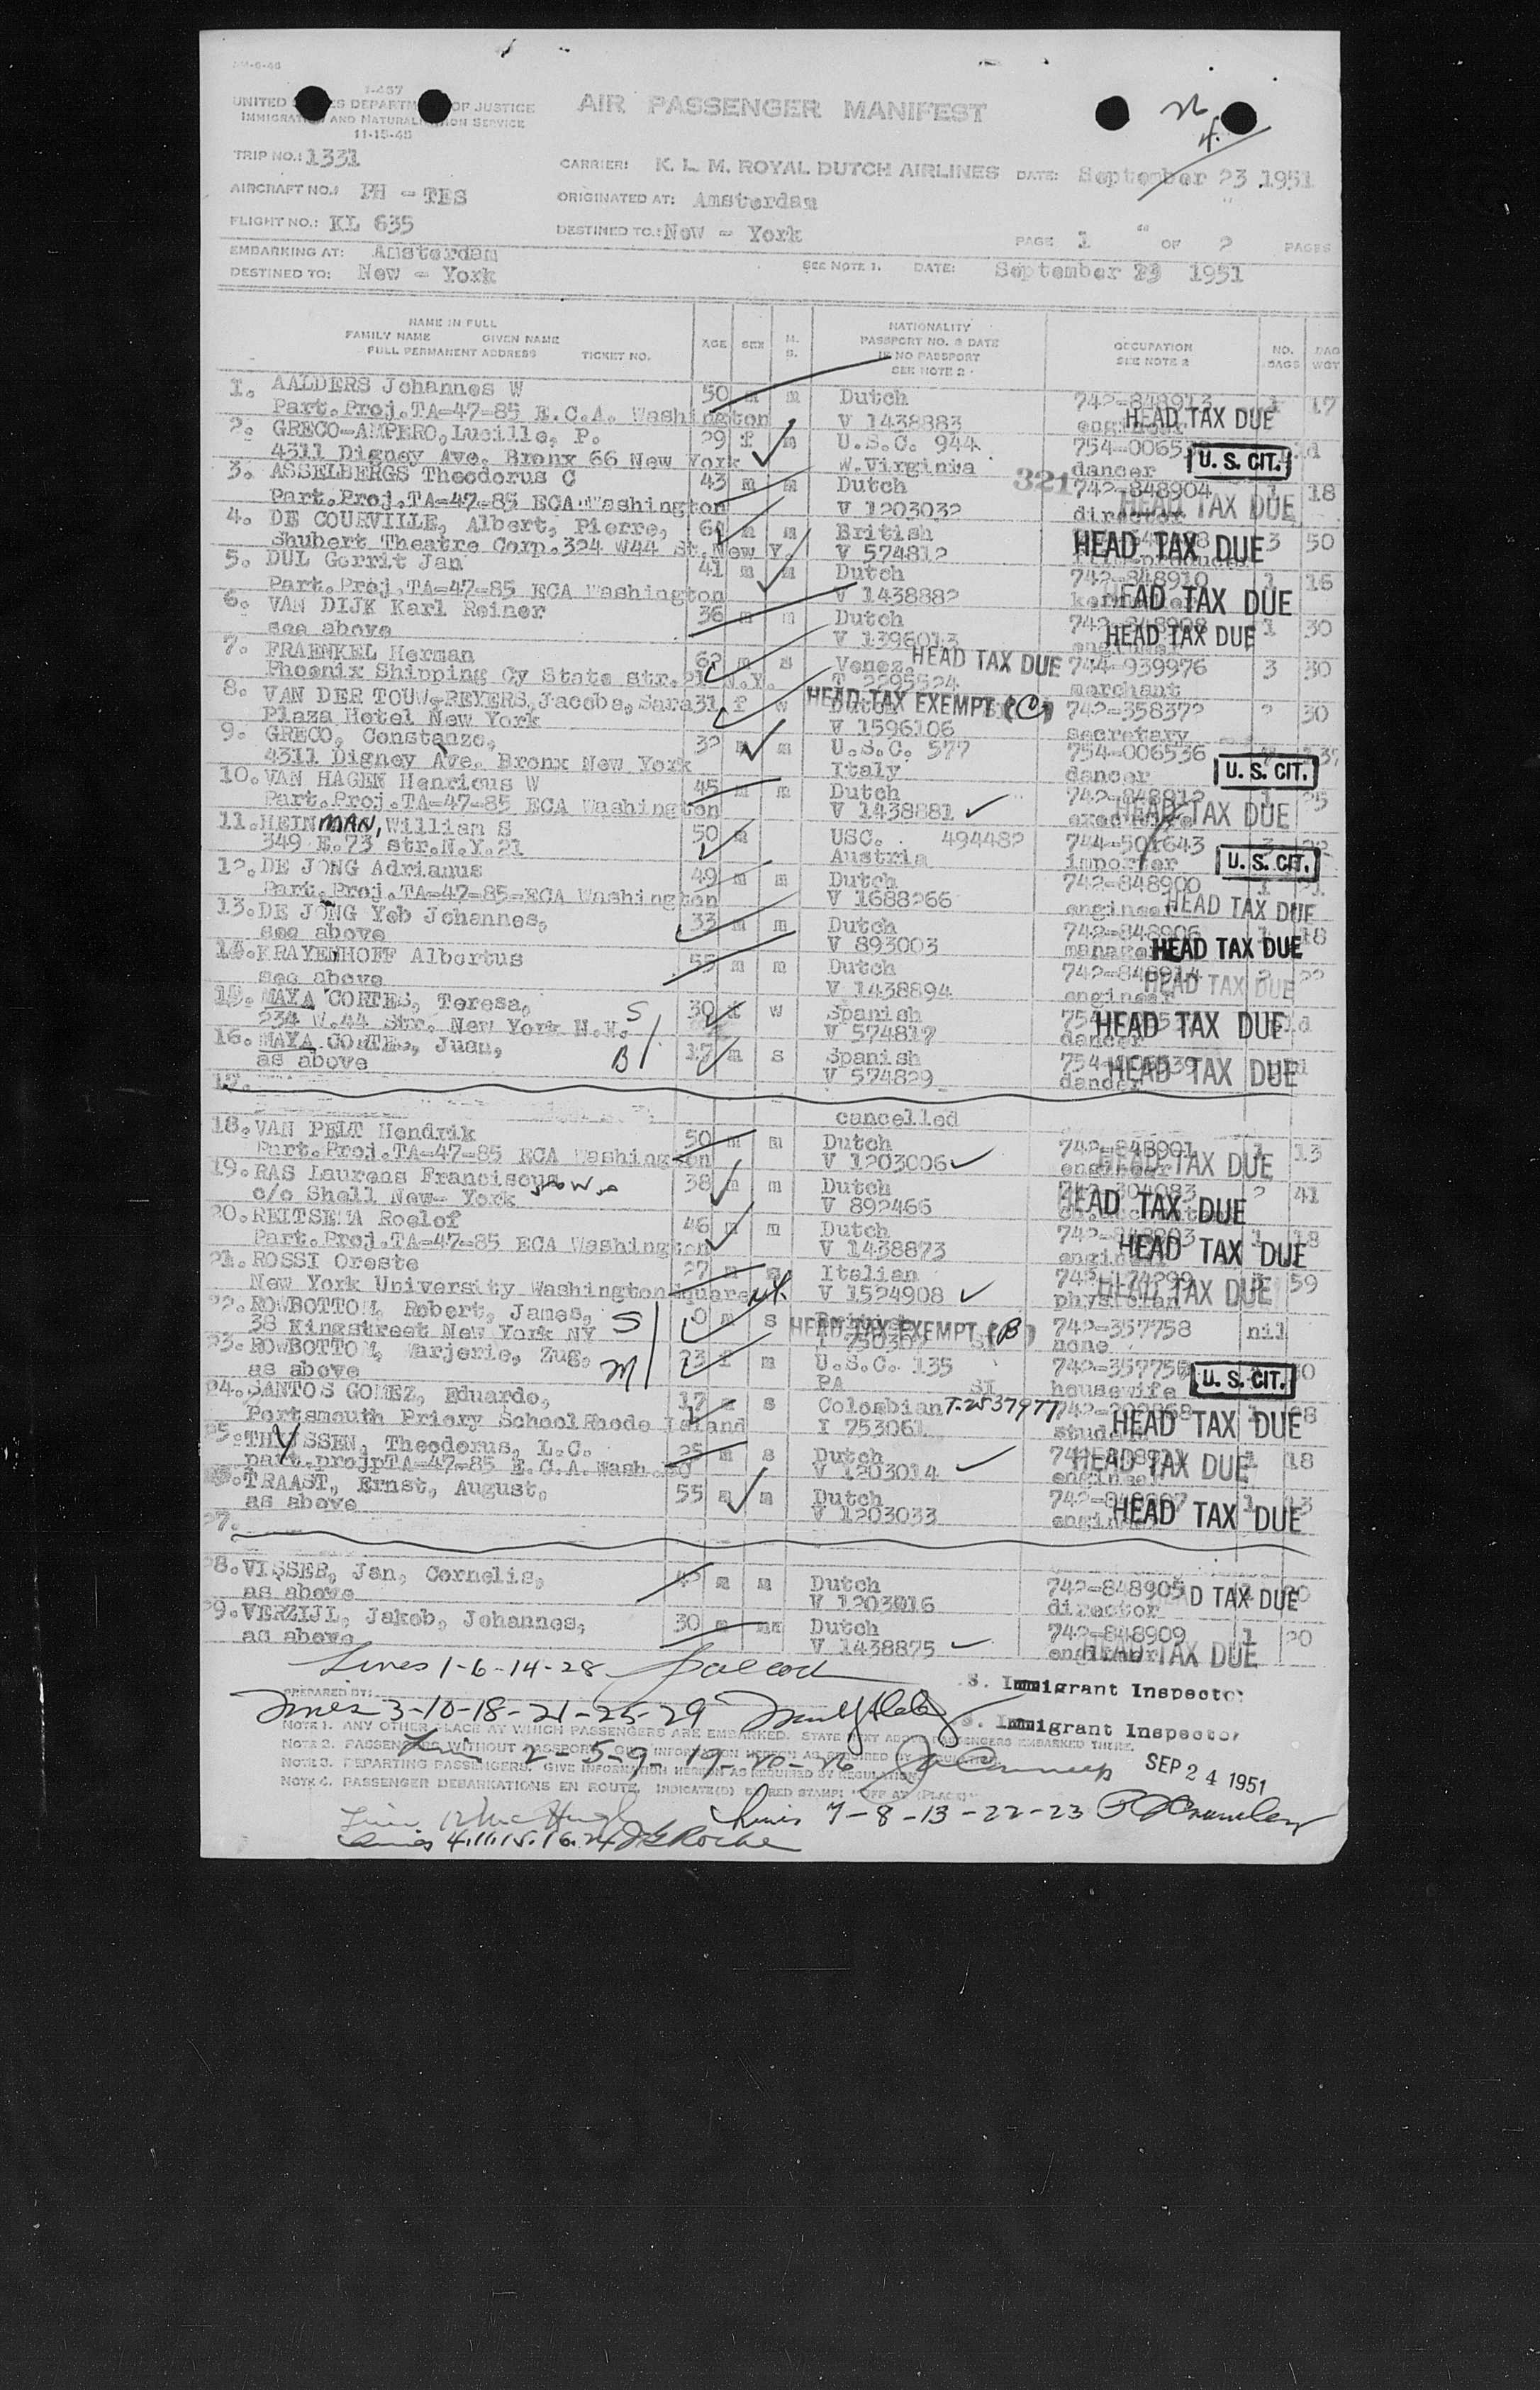 1-457
UNITED STATES DEPARTMENT OF JUSTICE
IMMIGRATION AND NATURALIZATION SERVICE
11-15-48
AIR PASSENGER MANIFEST
TRIP NO.: 1331
CARRIER: K. L. M. ROYAL DUTCH AIRLINES DATE: September 23 1951
AIRCRAFT NO.: PH - TES
ORIGINATED AT: Amsterdam
FLIGHT NO.: KL 635
DESTINED TO.: New - York
PAGE 1 OF 2 PAGES
EMBARKING AT: Amsterdam
DESTINED TO: New - York SEE NOTE 1. DATE: September 23 1951
NAME IN FULL
FAMILY NAME GIVEN NAME
FULL PERMANENT ADDRESS TICKET NO.
AGE SEX M. S.
NATIONALITY
PASSPORT NO. & DATE
IF NO PASSPORT
SEE NOTE 2
OCCUPATION
SEE NOTE 2
NO. BAGS
BAG WGT
1. AALDERS Johannes W 50 m m Dutch 742-848913 1 17
Part.Proj.TA-47-85 E.C.A. Washington V 1438883 HEAD TAX DUE
2. GRECO-AMPERO, Lucille, P. 29 f m U.S.C. 944
4311 Digney Ave. Bronx 66 New York W.Virginia dancer U. S. CIT.
3. ASSELBERGS Theodorus C 43 m m Dutch 321 742-848904 1 18
Part.Proj.TA-47-85 ECA Washington V 1203032 director HEAD TAX DUE
4. DE COURVILLE, Albert, Pierre, m m British 3 50
Shubert Theatre Corp.324 W44 St.New Y. V 574812 HEAD TAX DUE
5. DUL Gerrit Jan 41 m m Dutch 742-848910 1 16
Part.Proj.TA-47-85 ECA Washington V 1438882 HEAD TAX DUE
6. VAN DIJK Karl Reiner 36 m m Dutch 1 30
see above V 1396013 HEAD TAX DUE
7. FRAENKEL Herman 62 m s Venez. HEAD TAX DUE 744-939976 3 30
Phoenix Shipping Cy State str.21 N.Y. T 2295524 merchant
8. VAN DER TOUW-REYERS, Jacoba, Sara 31 f w Dutch HEAD TAX EXEMPT (C) 742-358372 2 30
Plaza Hotel New York V 1596106 secretary
9. GRECO, Constanzo, 32 m m U.S.C. 577 754-006536
4311 Digney Ave. Bronx New York Italy dancer U. S. CIT.
10. VAN HAGEN Henricus W 45 m m Dutch 742-848812 1 25
Part.Proj.TA-47-85 ECA Washington V 1438881 HEAD TAX DUE
11. HEINMAN, William S 50 m USC. 494482 744-501643
349 E.73 str.N.Y.21 Austria importer U. S. CIT.
12. DE JONG Adrianus 49 m m Dutch 742-848900 1 21
Part.Proj.TA-47-85-ECA Washington V 1688266 engineer HEAD TAX DUE
13. DE JONG Yeb Johannes, 33 m m Dutch 742-848906 1 18
see above V 893003 HEAD TAX DUE
14. KRAYENHOFF Albertus 55 m m Dutch 742-848914 2 22
see above V 1438894 engineer HEAD TAX DUE
15. MAYA CORTES, Teresa, S 30 f w Spanish
234 W.44 Str. New York N.Y. V 574817 dancer HEAD TAX DUE
16. MAYA CORTES, Juan, B 17 m s Spanish
as above V 574829 dancer HEAD TAX DUE
17.
cancelled
18. VAN PELT Hendrik 50 m m Dutch 742-848901 1 13
Part.Proj.TA-47-85 ECA Washington V 1203006 engineer HEAD TAX DUE
19. RAS Laurens Franciscus 38 m m Dutch 742-304083 2 41
c/o Shell New- York V 892466 HEAD TAX DUE
20. REITSEMA Roelof 46 m m Dutch 1 18
Part.Proj.TA-47-85 ECA Washington V 1438873 HEAD TAX DUE
21. ROSSI Oreste 27 m Italian 59
New York University Washington Square NY V 1524908 physician HEAD TAX DUE
22. ROWBOTTOM, Robert, James, S 0 m s HEAD TAX EXEMPT (B) 742-357758 nil
38 Kingstreet New York NY none
23. ROWBOTTOM, Marjorie, Zug. M 23 f m U.S.C. 135
as above PA housewife U. S. CIT.
24. SANTOS GOMEZ, Eduardo, 17 m s Colombian T-2537977
Portsmouth Priory School Rhode Island I 753061 HEAD TAX DUE
25. THYSSEN, Theodorus, L.C. 25 m s Dutch 1 18
part.projpTA-47-85 E.C.A.Wash. V 1203014 engineer HEAD TAX DUE
26. TRAAST, Ernst, August, 55 m m Dutch 1
as above V 1203033 HEAD TAX DUE
27.
28. VISSER, Jan, Cornelis, 42 m m Dutch 742-848905
as above director HEAD TAX DUE
29. VERZIJL, Jakob, Johannes, 30 m Dutch 742-848909 1 20
as above V 1438875 engineer HEAD TAX DUE
Lines 1-6-14-28 S. Immigrant Inspector
PREPARED BY:
Lines 3-10-18-21-25-29 S. Immigrant Inspector
NOTE 1. ANY OTHER PLACE AT WHICH PASSENGERS ARE EMBARKED. STATE NEXT ABOVE PASSENGERS EMBARKED THERE.
NOTE 2. PASSENGERS WITHOUT PASSPORT, GIVE INFORMATION HEREON AS REQUIRED BY REGULATIONS.
Lines 2-5-9-19-20-26 SEP 24 1951
NOTE 3. DEPARTING PASSENGERS. GIVE INFORMATION HEREON AS REQUIRED BY REGULATION.
NOTE 4. PASSENGER DEBARKATIONS EN ROUTE. INDICATE(D) BY RED STAMP: "OFF AT (PLACE)"
Line 12 McHugh Lines 7-8-13-22-23
Lines 4.11.15.16.24 Roche